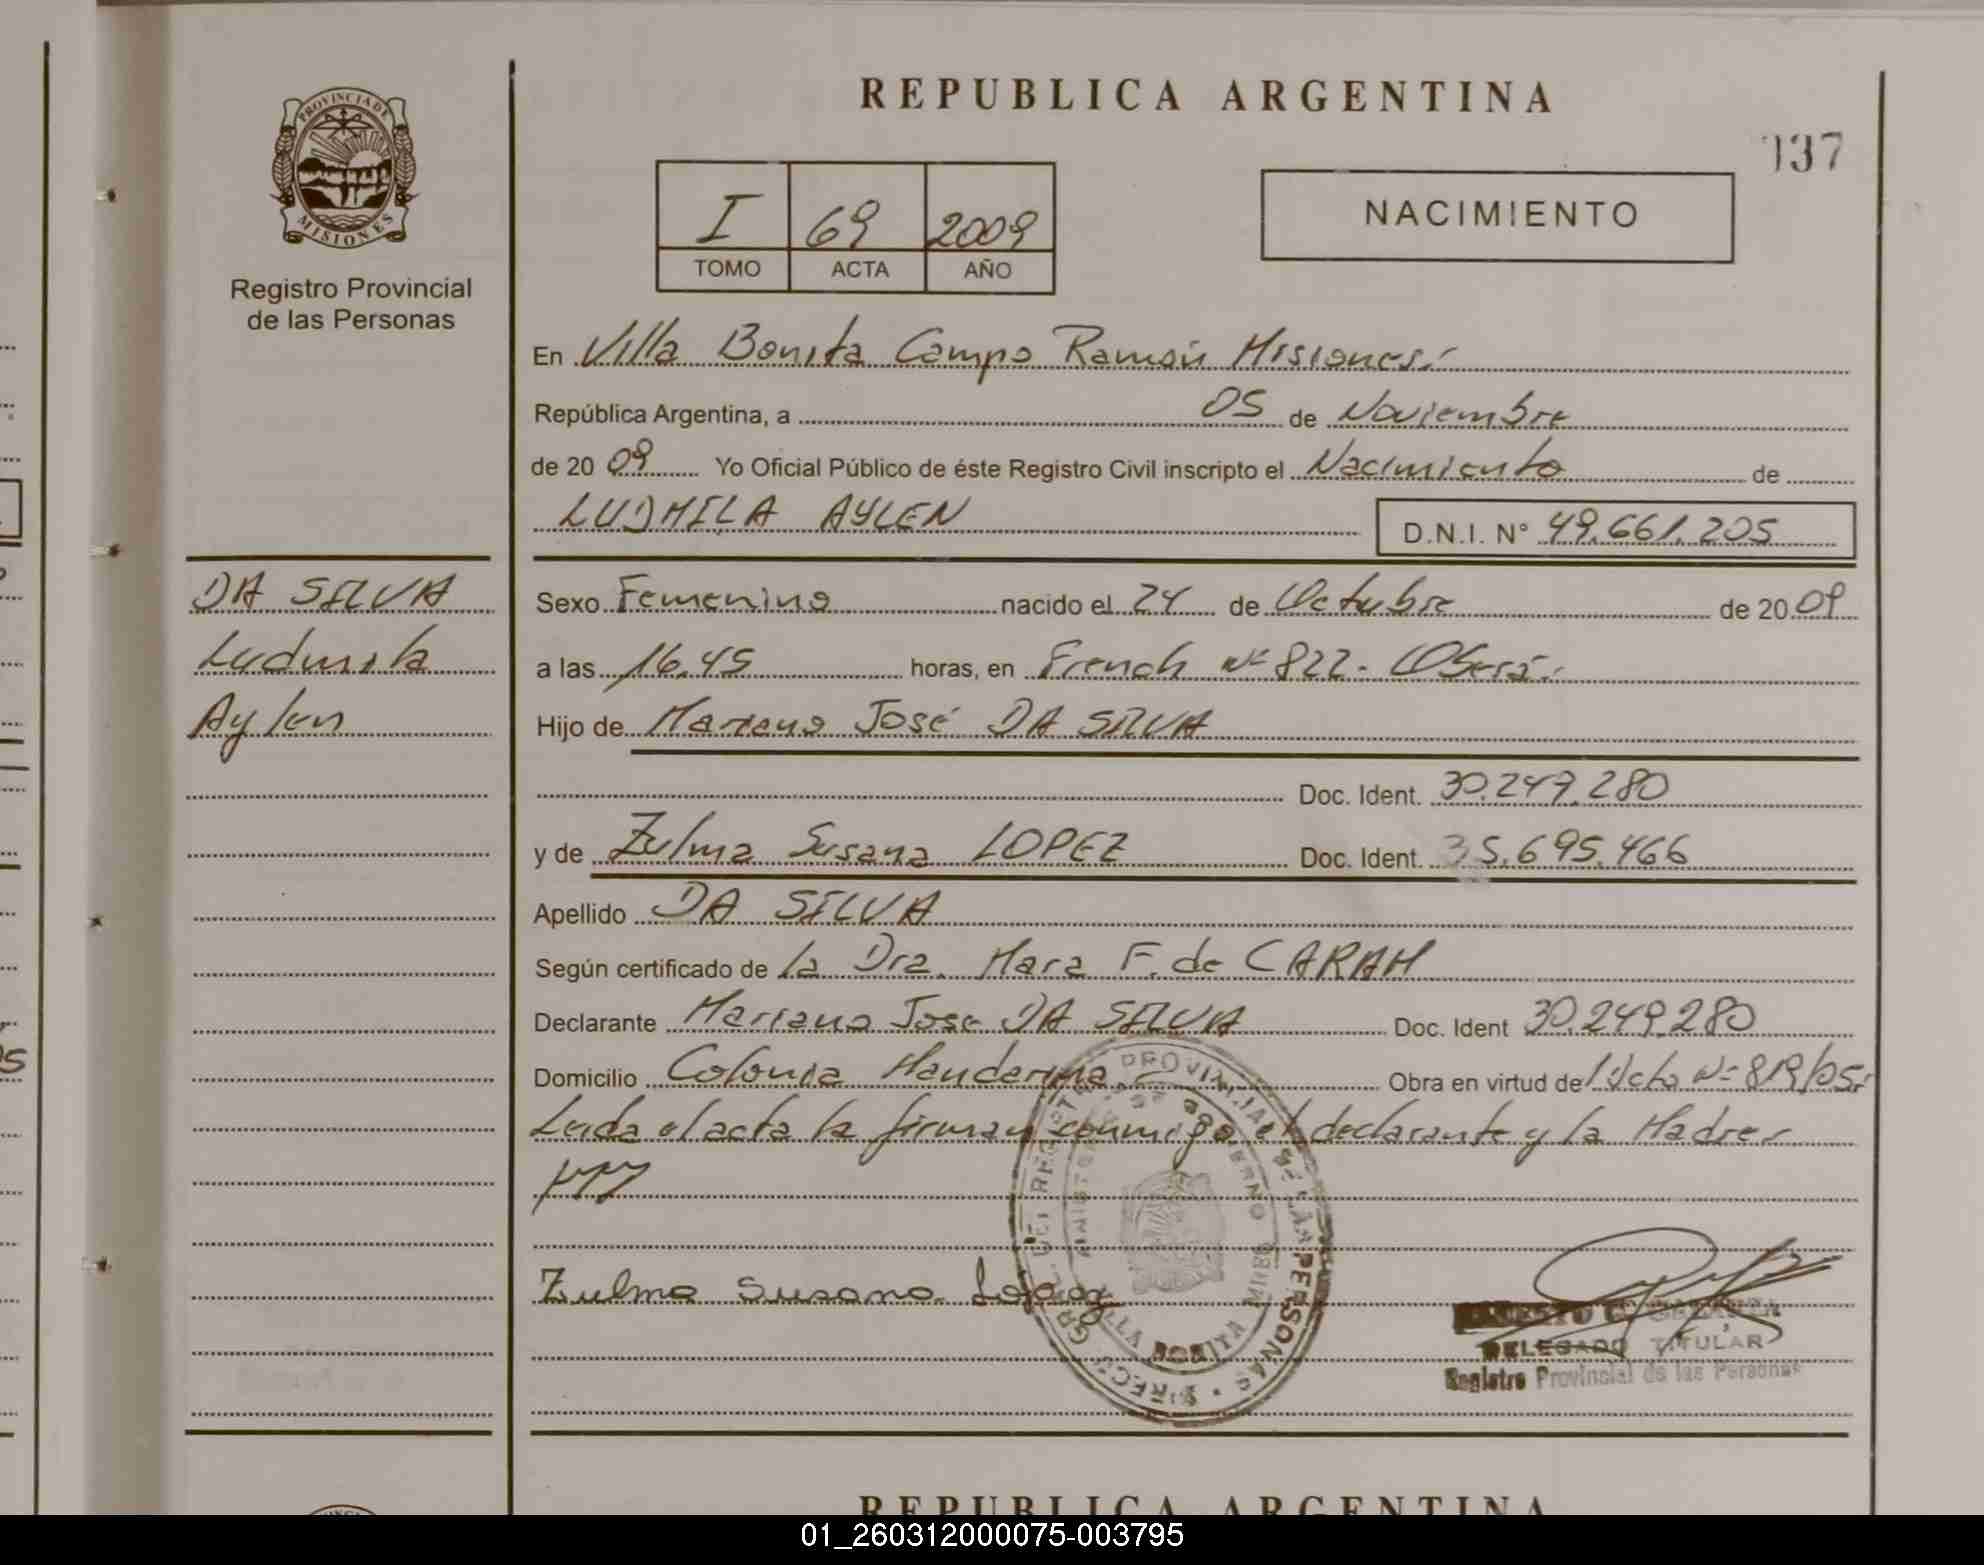 REPUBLICA ARGENTINA
137
PROVINCIA DE
MISIONES
Registro Provincial
de las Personas
I 69 2009
TOMO ACTA AÑO
NACIMIENTO
En Villa Bonita Campo Ramón Misiones.
República Argentina, a 05 de Noviembre
de 20 09 Yo Oficial Público de éste Registro Civil inscripto el Nacimiento de
LUDMILA AYLEN D.N.I. N° 49.661.205
DA SILVA
Ludmila
Aylen
Sexo Femenino nacido el 24 de Octubre de 20 09
a las 16.45 horas, en French Nº 822. Oberá.
Hijo de Mariano José DA SILVA
Doc. Ident. 30.249.280
y de Zulma Susana LOPEZ Doc. Ident. 35.695.466
Apellido DA SILVA
Según certificado de la Dra. Mara F. de CARAM
Declarante Mariano José DA SILVA Doc. Ident 30.249.280
Domicilio Colonia Obra en virtud de Nº 819/05.
Leida el acta la firman conmigo el declarante y la Madre
Zulma Susana Lopez
DELEGADO TITULAR
Registro Provincial de las Personas
VILLA BONITA
REPUBLICA ARGENTINA
01_260312000075-003795